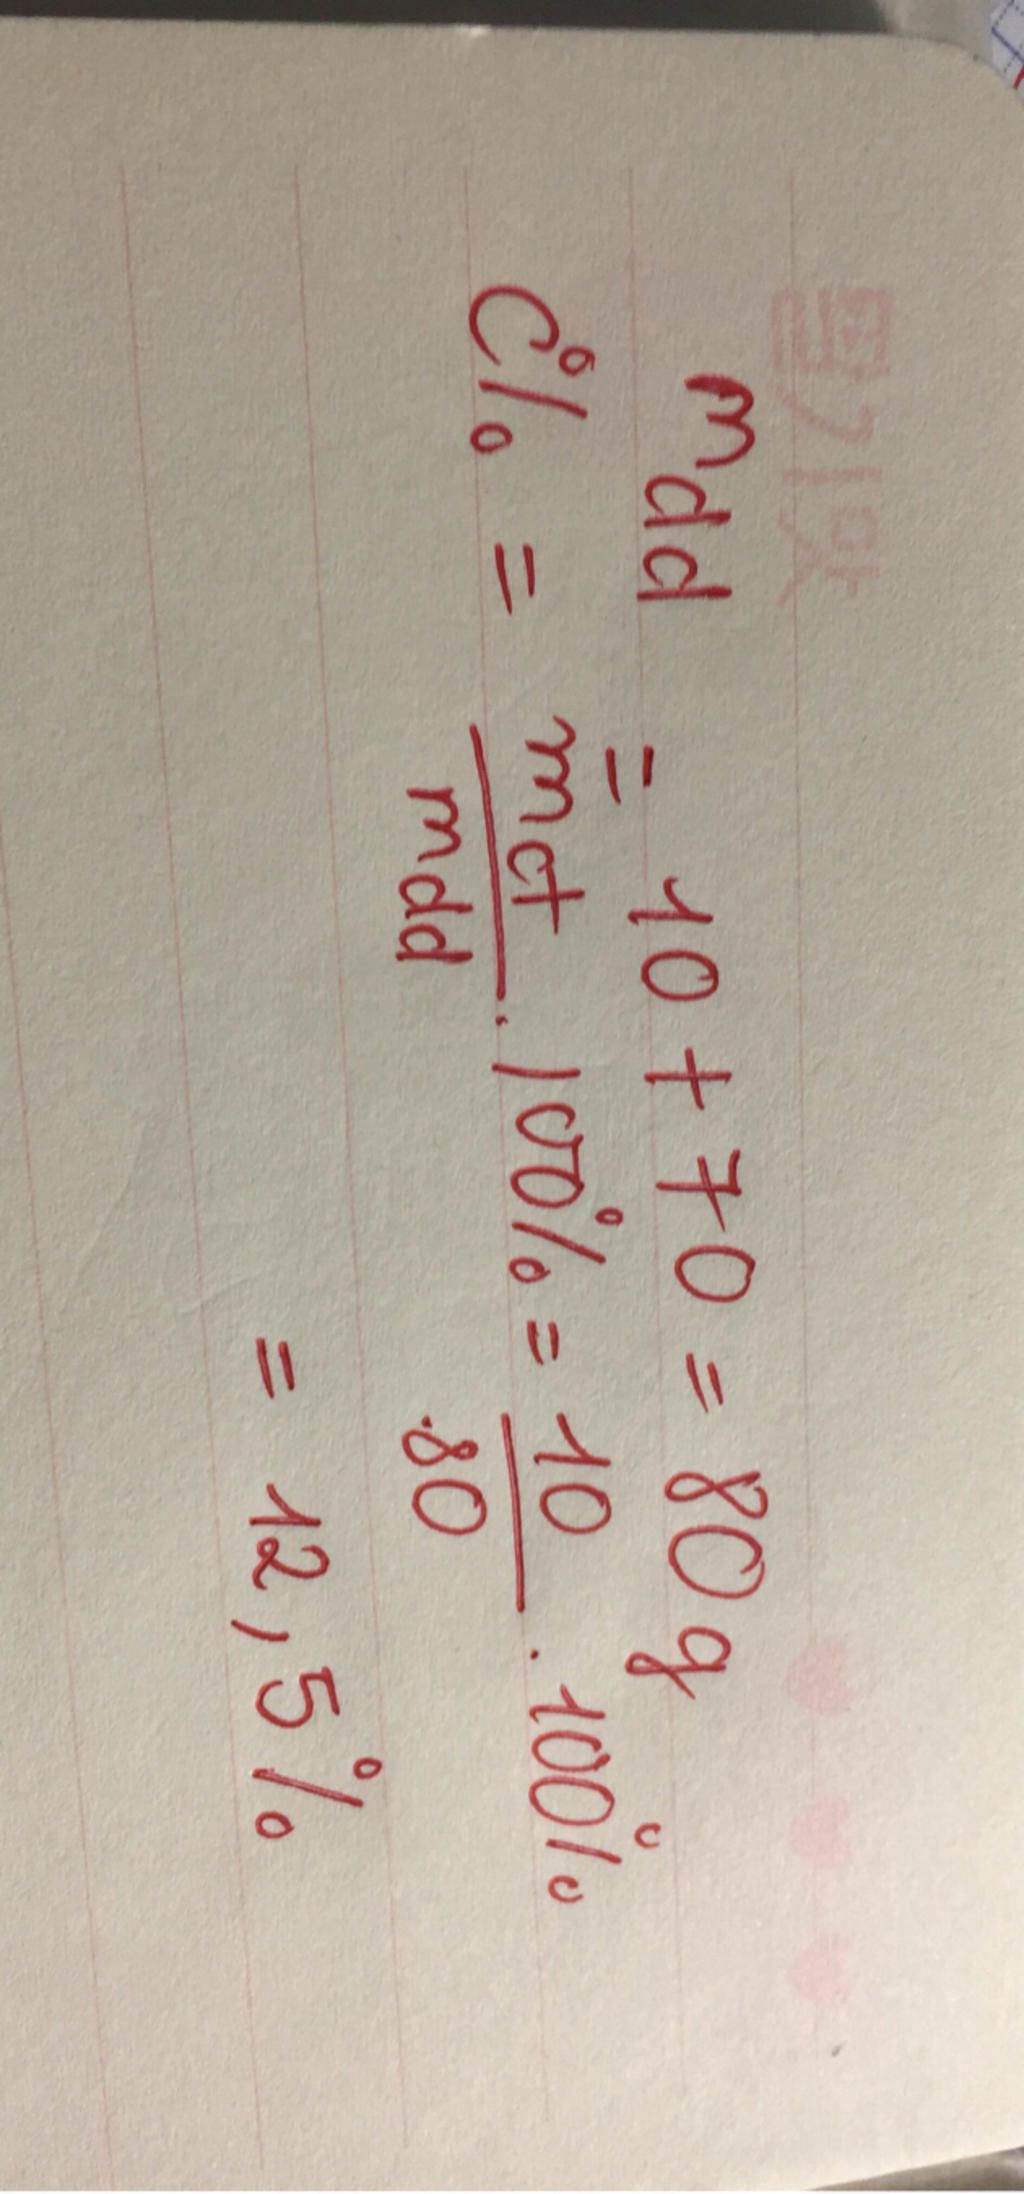 mdd = 10 + 70 = 80g
C% = mct/mdd . 100% = 10/80 . 100%
= 12,5%